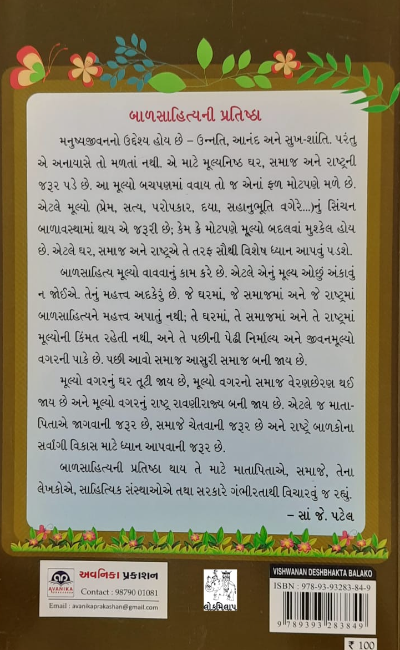 બાળસાહિત્યની પ્રતિષ્ઠા
મનુષ્યજીવનનો ઉદ્દેશ્ય હોય છે – ઉન્નતિ, આનંદ અને સુખ-શાંતિ. પરંતુ
એ અનાયાસે તો મળતાં નથી. એ માટે મૂલ્યનિષ્ઠ ઘર, સમાજ અને રાષ્ટ્રની
જરૂર પડે છે. આ મૂલ્યો બચપણમાં વવાય તો જ એનાં ફળ મોટપણે મળે છે.
એટલે મૂલ્યો (પ્રેમ, સત્ય, પરોપકાર, દયા, સહાનુભૂતિ વગેરે...)નું સિંચન
બાળાવસ્થામાં થાય એ જરૂરી છે; કેમ કે મોટપણે મૂલ્યો બદલવાં મુશ્કેલ હોય
છે. એટલે ઘર, સમાજ અને રાષ્ટ્રએ તે તરફ સૌથી વિશેષ ધ્યાન આપવું પડશે.
બાળસાહિત્ય મૂલ્યો વાવવાનું કામ કરે છે. એટલે એનું મૂલ્ય ઓછું અંકાવું
ન જોઈએ. તેનું મહત્ત્વ અદકેરું છે. જે ઘરમાં, જે સમાજમાં અને જે રાષ્ટ્રમાં
બાળસાહિત્યને મહત્ત્વ અપાતું નથી; તે ઘરમાં, તે સમાજમાં અને તે રાષ્ટ્રમાં
મૂલ્યોની કિંમત રહેતી નથી, અને તે પછીની પેઢી નિર્માલ્ય અને જીવનમૂલ્યો
વગરની પાકે છે. પછી આવો સમાજ આસુરી સમાજ બની જાય છે.
મૂલ્યો વગરનું ઘર તૂટી જાય છે, મૂલ્યો વગરનો સમાજ વેરણછેરણ થઈ
જાય છે અને મૂલ્યો વગરનું રાષ્ટ્ર રાવણીરાજ્ય બની જાય છે. એટલે જ માતા-
પિતાએ જાગવાની જરૂર છે, સમાજે ચેતવાની જરૂર છે અને રાષ્ટ્રે બાળકોના
સર્વાંગી વિકાસ માટે ધ્યાન આપવાની જરૂર છે.
બાળસાહિત્યની પ્રતિષ્ઠા થાય તે માટે માતાપિતાએ, સમાજે, તેના
લેખકોએ, સાહિત્યિક સંસ્થાઓએ તથા સરકારે ગંભીરતાથી વિચારવું જ રહ્યું.
– સાં જે. પટેલ
AVANIKA
અવનિકા પ્રકાશન
Contact : 98790 01081
Email : avanikaprakashan@gmail.com
લોકમિલાપ
VISHWANAN DESHBHAKTA BALAKO
ISBN : 978-93-93283-84-9
9 789393 283849
₹ 100